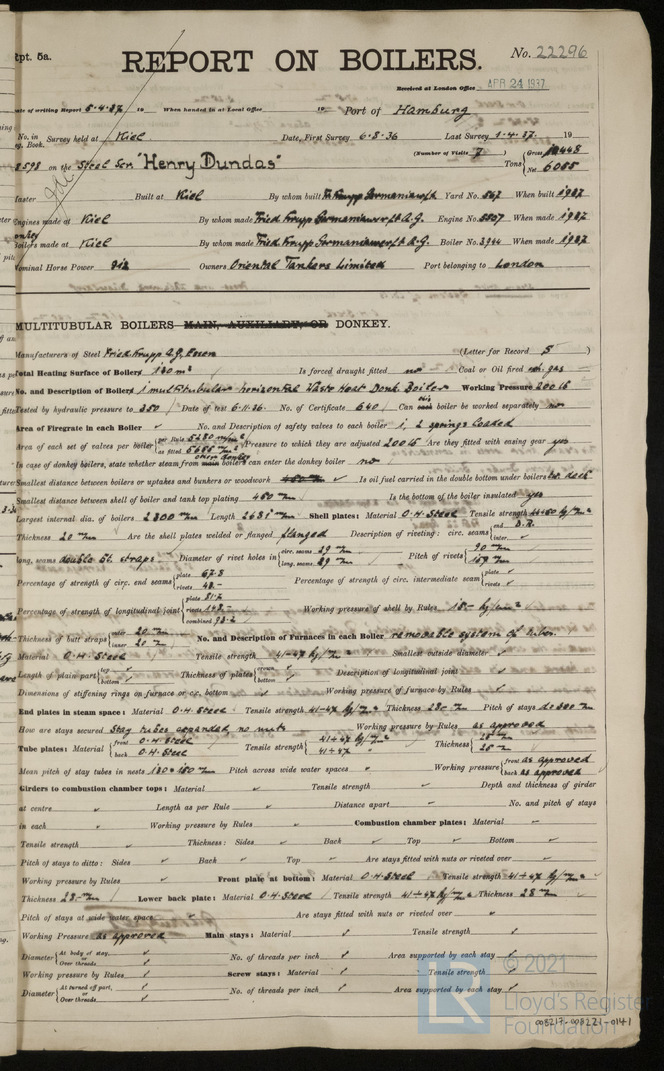 Rpt. 5a.
REPORT ON BOILERS.
No. 22296
Received at London Office APR 24 1937
Date of writing Report 5.4.37 19 When handed in at Local Office 19 Port of Hamburg
No. in Survey held at Kiel Date, First Survey 6.8.36 Last Survey 1.4.37. 19
Reg. Book.
(Number of Visits 7 )
on the Steel Scr. "Henry Dundas" Tons { Gross
Net 6085
Master Built at Kiel By whom built Fr. Krupp Germaniawerft Yard No. 567 When built 1937
Engines made at Kiel By whom made Fried. Krupp Germaniawerft A.G. Engine No. When made 1937
Boilers made at Kiel By whom made Fried. Krupp Germaniawerft A.G. Boiler No. 3944 When made 1937
Nominal Horse Power Owners Oriental Tankers Limited Port belonging to London
MULTITUBULAR BOILERS MAIN, AUXILIARY, OR DONKEY.
Manufacturers of Steel Fried. Krupp A.G., Essen (Letter for Record S )
Total Heating Surface of Boilers 130 m² Is forced draught fitted no Coal or Oil fired exh. gas
No. and Description of Boilers 1 multitubular horizontal Waste Heat Donk. Boiler Working Pressure 200 lb
Tested by hydraulic pressure to 350 Date of test 6.11.36. No. of Certificate 640 Can this boiler be worked separately no
Area of Firegrate in each Boiler ✓ No. and Description of safety valves to each boiler 1, 2 springs loaded
Area of each set of valves per boiler { per Rule 5280 mm²
as fitted mm² Pressure to which they are adjusted 200 lb Are they fitted with easing gear yes
In case of donkey boilers, state whether steam from main boilers can enter the donkey boiler no
Smallest distance between boilers or uptakes and bunkers or woodwork ✓ Is oil fuel carried in the double bottom under boilers
Smallest distance between shell of boiler and tank top plating 460 mm Is the bottom of the boiler insulated yes
Largest internal dia. of boilers 2300 mm Length 2681 mm Shell plates: Material O.H. Steel Tensile strength 44-50 kg/mm²
Thickness 20 mm Are the shell plates welded or flanged flanged Description of riveting: circ. seams { end D.R.
inter. ✓
long. seams double bt. straps Diameter of rivet holes in { circ. seams 29 mm
long. seams 29 mm Pitch of rivets { 90 mm
159 mm
Percentage of strength of circ. end seams { plate 67.8
rivets 48.- Percentage of strength of circ. intermediate seam { plate ✓
rivets ✓
Percentage of strength of longitudinal joint { plate 81.7
rivets
combined 93.2 Working pressure of shell by Rules 15.- kg/mm²
Thickness of butt straps { outer 20 mm
inner 20 mm No. and Description of Furnaces in each Boiler removable system of tubes.
Material O.H. Steel Tensile strength 41-47 kg/mm² Smallest outside diameter ✓
Length of plain part { top ✓
bottom ✓ Thickness of plates { crown ✓
bottom ✓ Description of longitudinal joint ✓
Dimensions of stiffening rings on furnace or c.c. bottom ✓ Working pressure of furnace by Rules ✓
End plates in steam space: Material O.H. Steel Tensile strength 41-47 kg/mm² Thickness 28.- mm Pitch of stays
How are stays secured Stay tubes expanded no nuts Working pressure by Rules as approved
Tube plates: Material { front O.H. Steel
back O.H. Steel Tensile strength { 41-47 kg/mm²
41-47 " Thickness { 28 mm
28 mm
Mean pitch of stay tubes in nests Pitch across wide water spaces ✓ Working pressure { front as approved
back as approved
Girders to combustion chamber tops: Material ✓ Tensile strength ✓ Depth and thickness of girder
at centre ✓ Length as per Rule ✓ Distance apart ✓ No. and pitch of stays
in each ✓ Working pressure by Rules ✓ Combustion chamber plates: Material ✓
Tensile strength ✓ Thickness: Sides ✓ Back ✓ Top ✓ Bottom ✓
Pitch of stays to ditto: Sides ✓ Back ✓ Top ✓ Are stays fitted with nuts or riveted over ✓
Working pressure by Rules ✓ Front plate at bottom: Material O.H. Steel Tensile strength 41-47 kg/mm²
Thickness 28.- mm Lower back plate: Material O.H. Steel Tensile strength 41-47 kg/mm² Thickness 28 mm
Pitch of stays at wide water space ✓ Are stays fitted with nuts or riveted over ✓
Working Pressure as approved Main stays: Material ✓ Tensile strength ✓
Diameter { At body of stay, ✓
or
Over threads. ✓ No. of threads per inch ✓ Area supported by each stay ✓
Working pressure by Rules ✓ Screw stays: Material ✓ Tensile strength ✓
Diameter { At turned off part, ✓
or
Over threads. ✓ No. of threads per inch ✓ Area supported by each stay ✓
© 2021
LR Lloyd's Register
Foundation
008217-008221-0141